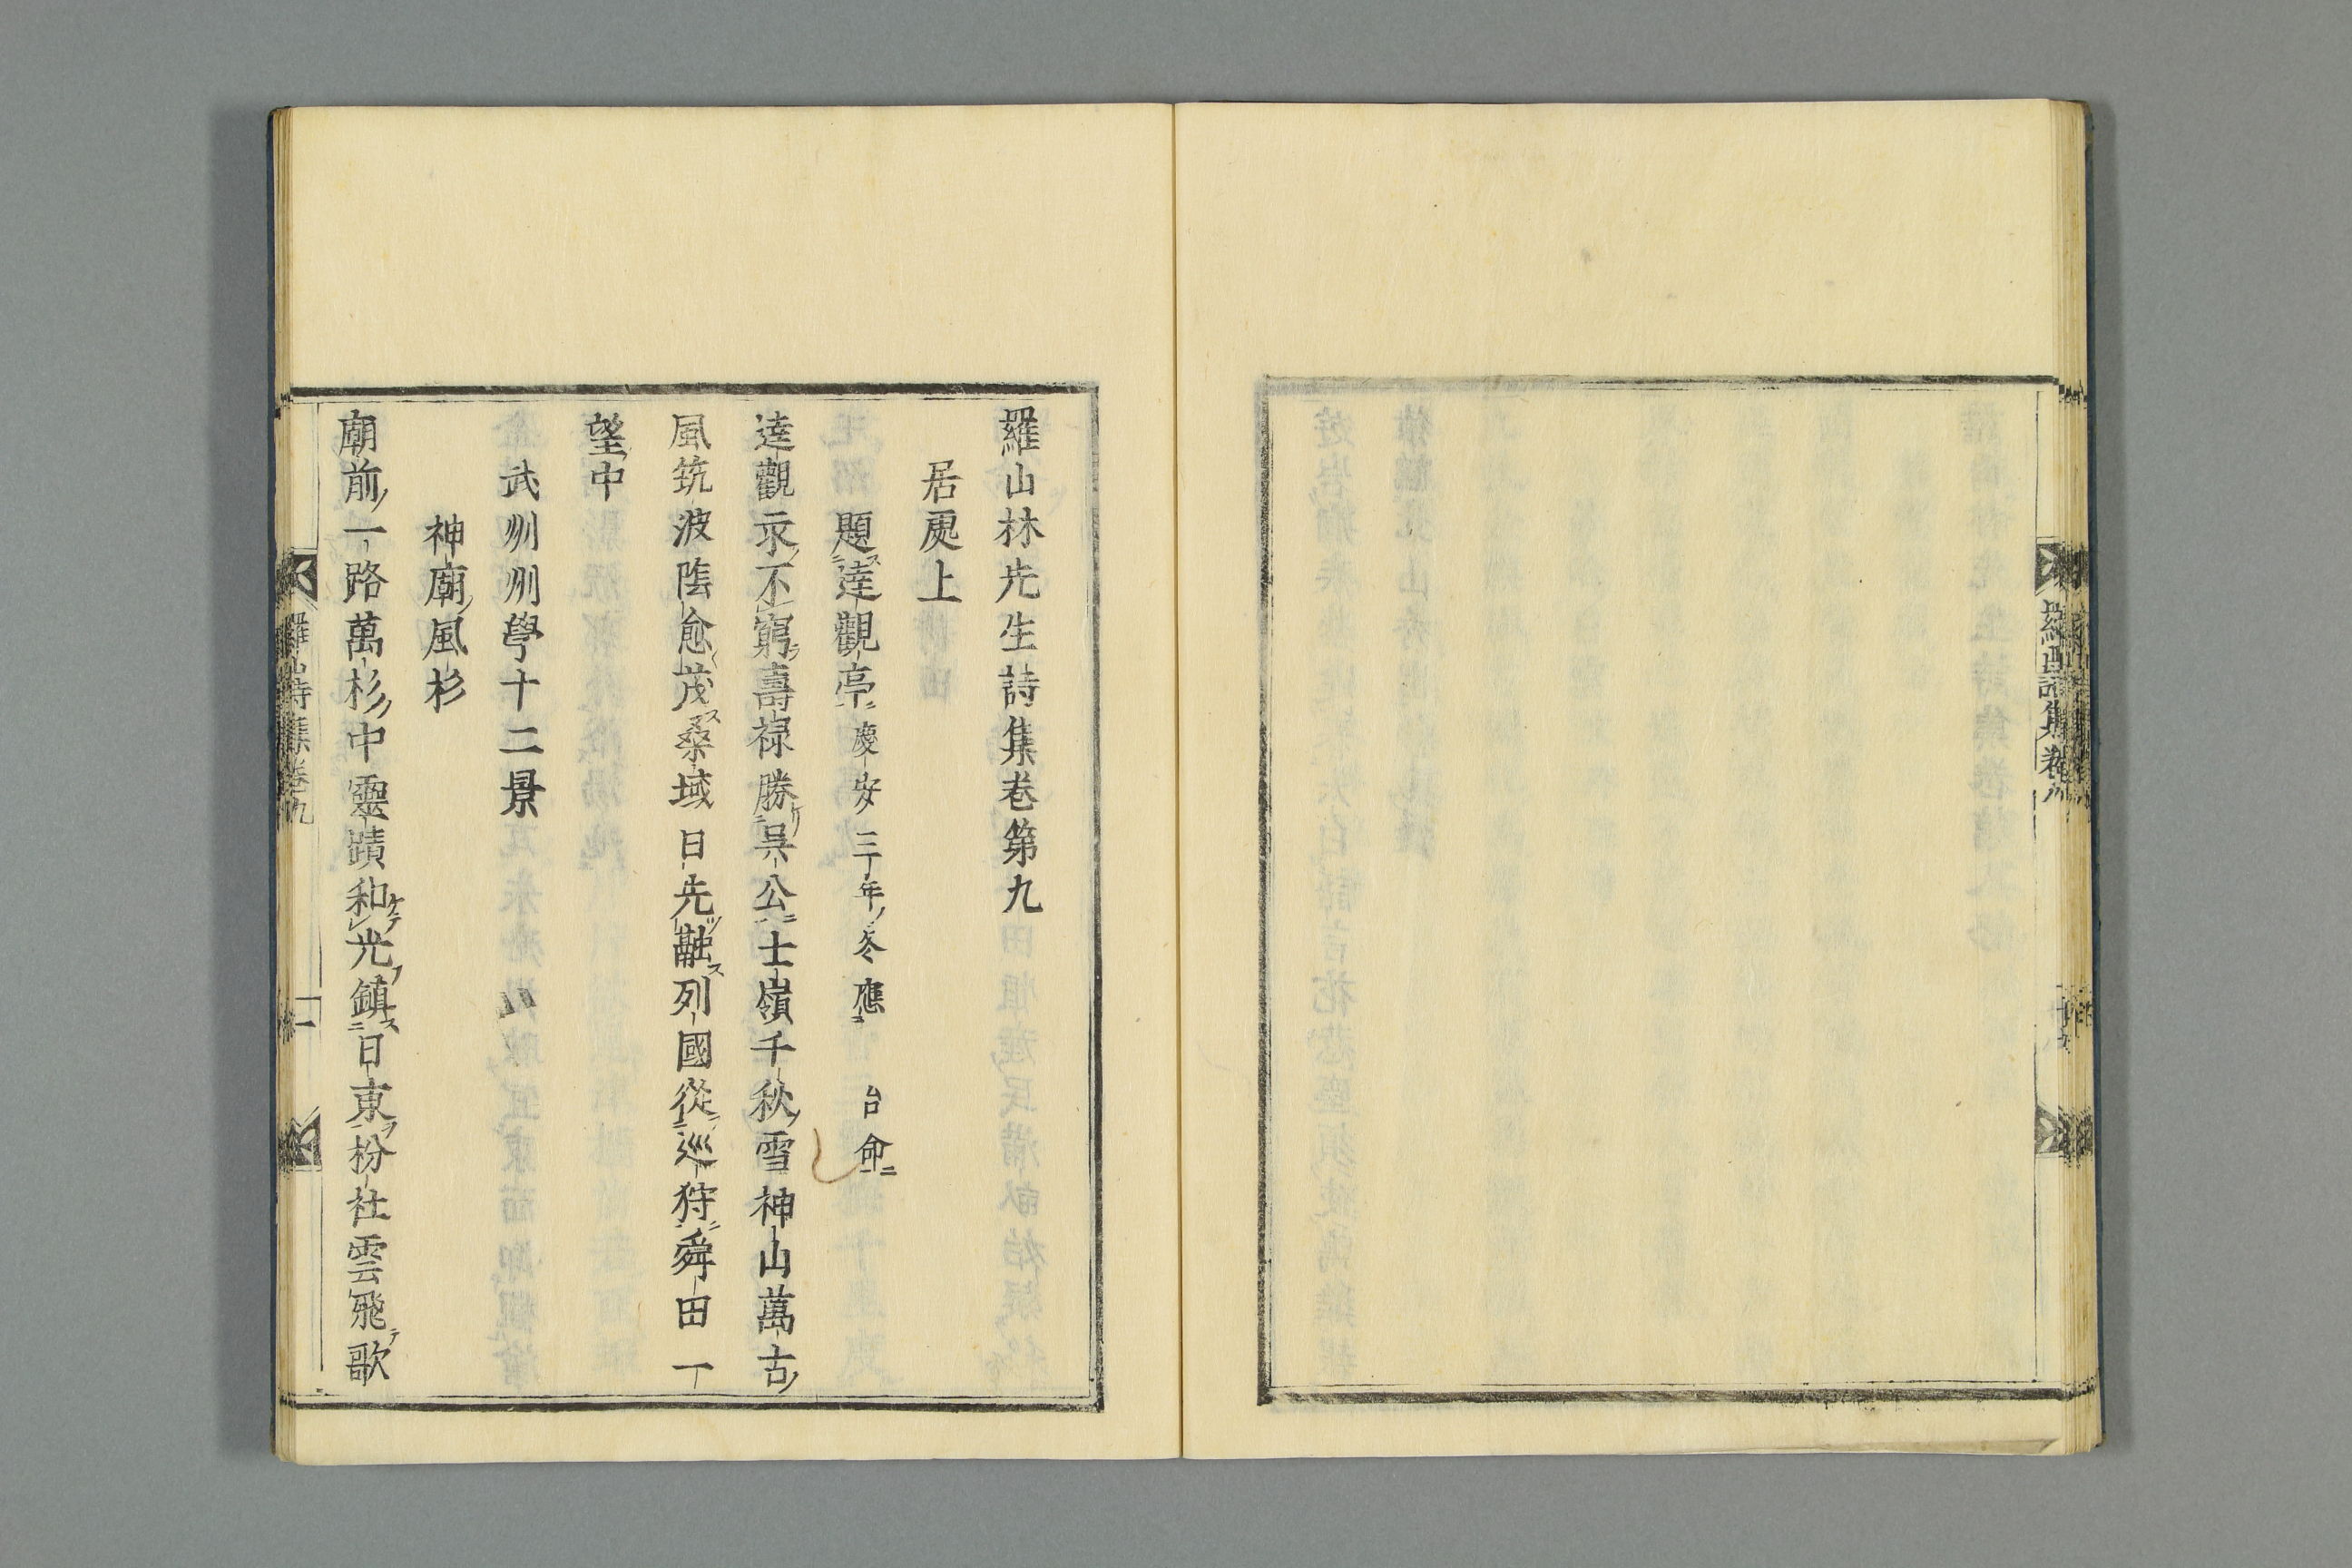 羅山林先生詩集卷第九
居處上
題達觀亭慶安三年冬應　台命
達觀亭不窮壽祿勝吳公士嶺千秋雪神山萬古
風筑波陰愈茂桑域日先融列國從巡狩舜田一
望中
武州州學十二景
神廟風杉
廟前一路萬杉中靈蹟和光鎮日東枌社雲飛歌
羅山詩集卷九
一